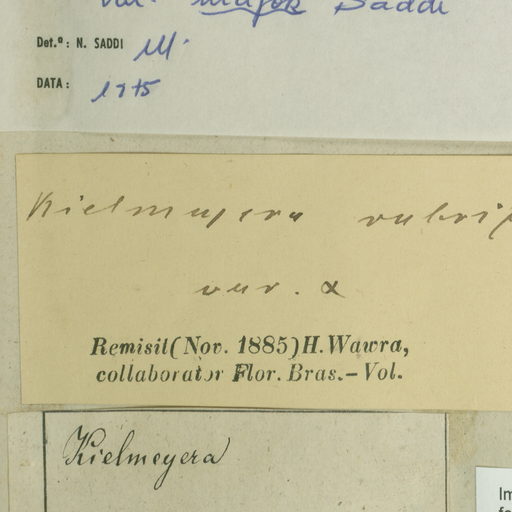 var. major Saddi
Det.º: N. SADDI
DATA: 1975
Kielmeyera
var. α
Remisit (Nov. 1885) H. Wawra,
collaborator Flor. Bras.-Vol.
Kielmeyera
Im